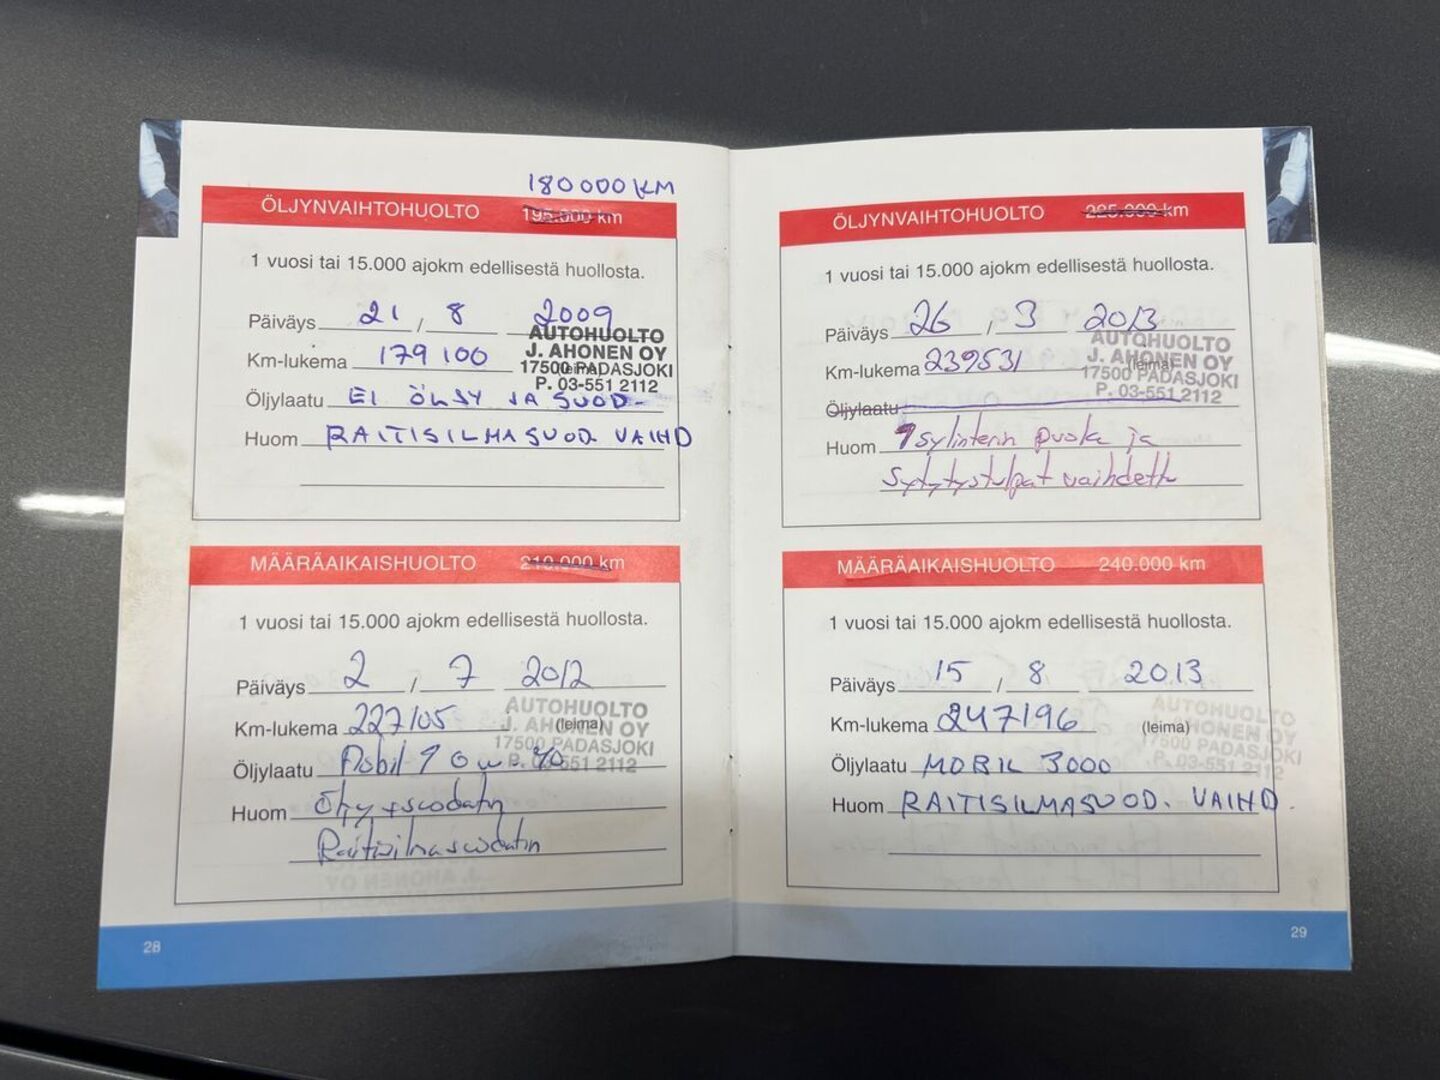 180000 KM
ÖLJYNVAIHTOHUOLTO 195.000 km
1 vuosi tai 15.000 ajokm edellisestä huollosta.
Päiväys 21 / 8 2009
AUTOHUOLTO
J. AHONEN OY
17500 PADASJOKI
P. 03-551 2112
Km-lukema 179 100 (leima)
Öljylaatu EI ÖLJY JA SUOD.
Huom RAITISILMASUOD. VAIHD
MÄÄRÄAIKAISHUOLTO 210.000 km
1 vuosi tai 15.000 ajokm edellisestä huollosta.
Päiväys 2 / 7 2012
AUTOHUOLTO
J. AHONEN OY
17500 PADASJOKI
P. 03-551 2112
Km-lukema 227105 (leima)
Öljylaatu Mobil 1 0w-40
Huom Öljy+suodatin
Raitisilmasuodatin
28
ÖLJYNVAIHTOHUOLTO 225.000 km
1 vuosi tai 15.000 ajokm edellisestä huollosta.
Päiväys 26 / 3 2013
AUTOHUOLTO
J. AHONEN OY
17500 PADASJOKI
P. 03-551 2112
Km-lukema 239531 (leima)
Öljylaatu
Huom 1 sylinterin puola ja
sytytystulpat vaihdettu
MÄÄRÄAIKAISHUOLTO 240.000 km
1 vuosi tai 15.000 ajokm edellisestä huollosta.
Päiväys 15 / 8 2013
AUTOHUOLTO
J. AHONEN OY
17500 PADASJOKI
P. 03-551 2112
Km-lukema 247196 (leima)
Öljylaatu MOBIL 3000
Huom RAITISILMASUOD. VAIHD.
29